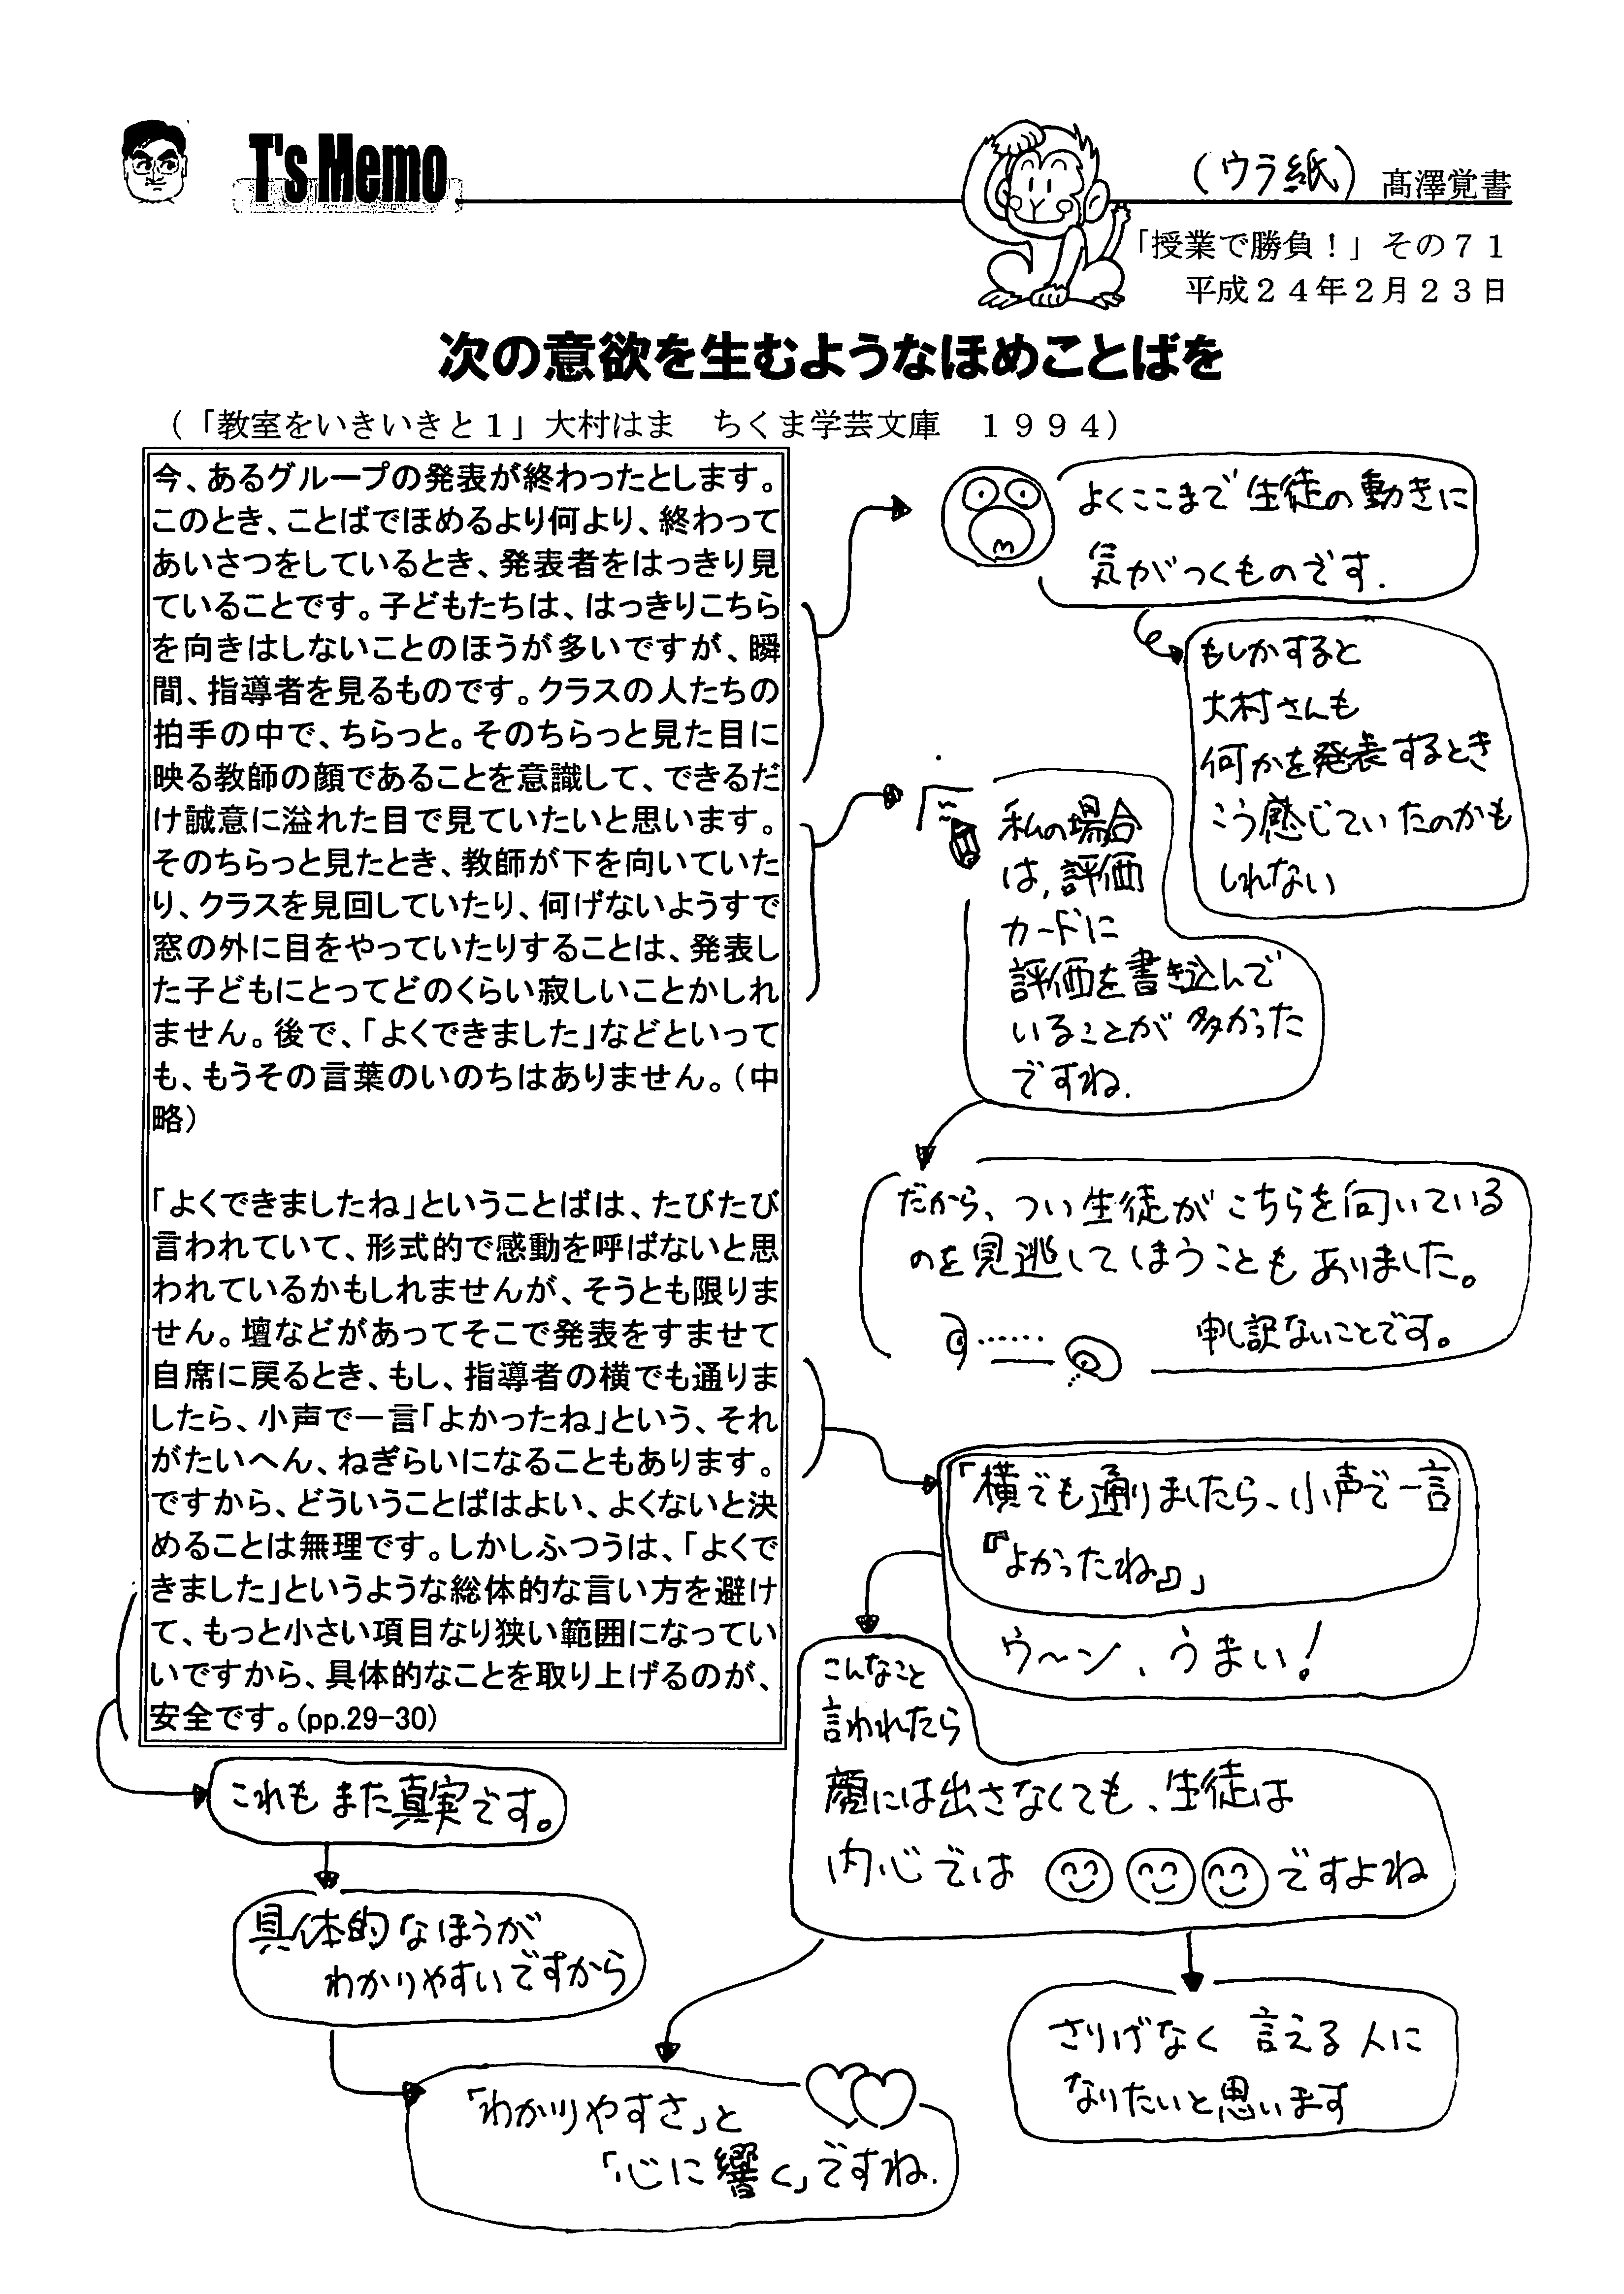 T's Memo
(ウラ紙)
髙澤覚書
「授業で勝負！」その７１
平成２４年２月２３日
次の意欲を生むようなほめことばを
（「教室をいきいきと１」大村はま　ちくま学芸文庫　１９９４）
今、あるグループの発表が終わったとします。
このとき、ことばでほめるより何より、終わって
あいさつをしているとき、発表者をはっきり見
ていることです。子どもたちは、はっきりこちら
を向きはしないことのほうが多いですが、瞬
間、指導者を見るものです。クラスの人たちの
拍手の中で、ちらっと。そのちらっと見た目に
映る教師の顔であることを意識して、できるだ
け誠意に溢れた目で見ていたいと思います。
そのちらっと見たとき、教師が下を向いていた
り、クラスを見回していたり、何げないようすで
窓の外に目をやっていたりすることは、発表し
た子どもにとってどのくらい寂しいことかしれ
ません。後で、「よくできました」などといって
も、もうその言葉のいのちはありません。（中
略）
「よくできましたね」ということばは、たびたび
言われていて、形式的で感動を呼ばないと思
われているかもしれませんが、そうとも限りま
せん。壇などがあってそこで発表をすませて
自席に戻るとき、もし、指導者の横でも通りま
したら、小声で一言「よかったね」という、それ
がたいへん、ねぎらいになることもあります。
ですから、どういうことばはよい、よくないと決
めることは無理です。しかしふつうは、「よくで
きました」というような総体的な言い方を避け
て、もっと小さい項目なり狭い範囲になってい
いですから、具体的なことを取り上げるのが、
安全です。(pp.29-30)
よくここまで生徒の動きに
気がつくものです.
もしかすると
大村さんも
何かを発表するとき
こう感じていたのかも
しれない
私の場合
は,評価
カードに
評価を書き込んで
いることが多かった
ですね.
だから、つい生徒がこちらを向いている
のを見逃してしまうこともありました。
申し訳ないことです。
「横でも通りましたら、小声で一言
『よかったね』」
ウ〜ン、うまい！
こんなこと
言われたら
顔には出さなくても、生徒は
内心では ですよね
さりげなく言える人に
なりたいと思います
これもまた真実です。
具体的なほうが
わかりやすいですから
「わかりやすさ」と
「心に響く」ですね.